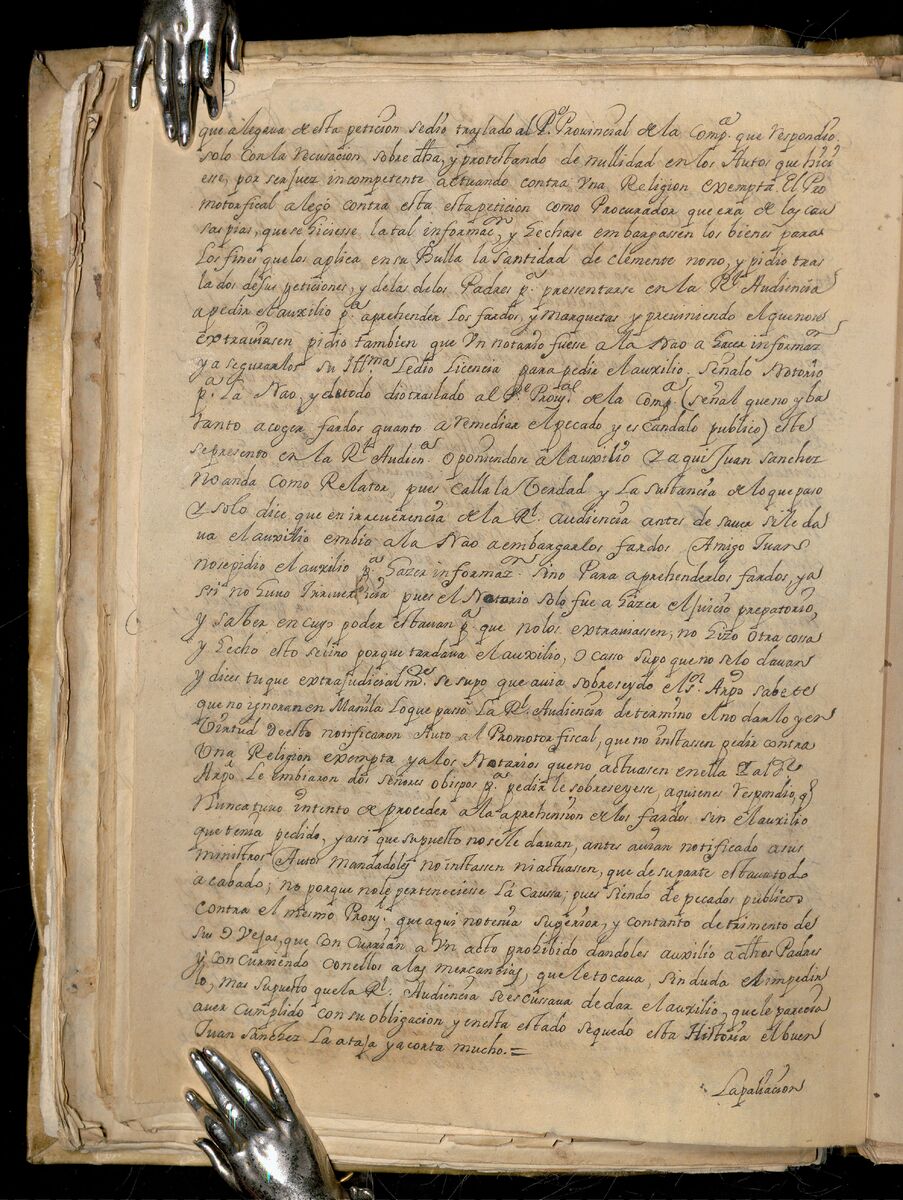 que alegava de esta peticion se dio traslado al P.e Provincial de la Comp.a que Respondio
solo con la recusacion, sobre dha, y protestando de nullidad en los Autos que hici
esse, por ser Juez incompetente actuando contra Vna Religion exempta. El Pro
motor fiscal alegò contra esta esta peticion como Procurador que era de las cau
sas pias, que se hiciesse la tal informac.on y hecha se embargassen los bienes para
los fines que los aplica en su Bulla la Santidad de Clemente nono, y pidio tras
lados de sus peticiones, y de las de los Padres p.a pressentarse en la R.l Audiencia
a pedir el auxilio p.a aprehender los fardos, y marquetas y previniendo el que no se
extraviasen pidio tambien que Vn notario fuese a la Nao a hazer informaz.on
y a segurarlos su Ill.ma Le dio Licencia para pedir el auxilio. Señalo Notario
p.a la Nao, y de todo dio traslado al P.e Prov.al de la Comp.a (señal que no yba
tanto a coger fardos quanto a remediar el pecado y escandalo publico) este
se presento en la R.l Audien.a oponiendose al auxilio (y aqui Juan Sanchez
no anda como Relator pues calla la Verdad y La sustancia de lo que paso
y solo dice que en irreverencia de la R.l audiencia antes de saver si le da
va el auxilio embio a la Nao a embargar los fardos (Amigo Juan
no se pidio el auxilio p.a hazer informaz.on sino Para aprehender los fardos, y a
ssi no huvo Irreverencia pues el Notario solo fue a hazer el juicio prepatorio,
y saber en cuyo poder estavan p.a que no los extraviassen, no hizo otra cossa
y hecho esto se vino porque tardava el auxilio, o casso supo que no se lo davan
y dices tu que extrajudicialm.te se supo que avia sobreseydo el S.or Arpo sabete
que no ygnoran en Manila lo que passò La R.l Audiencia determino el no darlo y en
Virtud de esto notificaron Auto al Promotor fiscal, que no instassen pedir contra
Vna Religion exempta y a los Notarios que no actuasen en ella y al
Arpo. Le embiaron dos señores obispos p.a pedirle sobreseyese, a quienes respondio, q
Nunca tuvo intento de proceder a la aprehension de los fardos sin el auxilio
que tenia pedido, y assi que supuesto no se le davan, antes avian notificado a sus
ministros Autos mandadoles no instassen ni actuassen, que de su parte estava todo
acabado; no porque no le perteneciesse La caussa; pues siendo de pecados publicos
contra el mesmo Prov.l que aqui no tenia superior, y con tanto detrimento de
sus ovejas, que concurrian a Vn acto prohibido dandoles auxilio a dhos Padres
y concurriendo con ellos a las mercancias, que le tocava, sin duda el impedir
lo, mas supuesto que la R.l Audiencia se escussava de dar el auxilio, que le parecia
aver cumplido con su obligacion, y en este estado se quedo esta Historia el buen
Juan Sanchez La ataja y acorta mucho. =
La paliacion